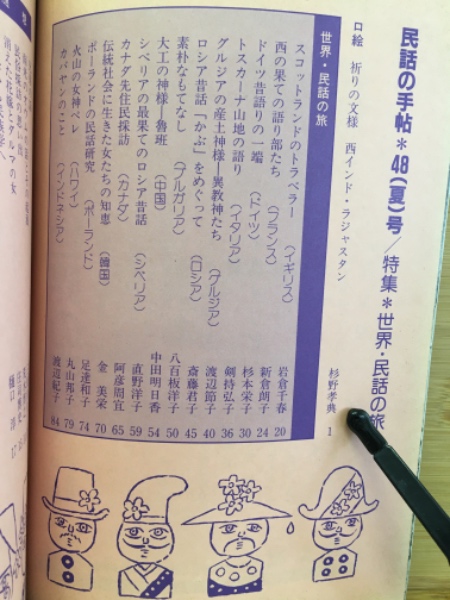 民話の手帖＊48(夏)号／特集＊世界・民話の旅
口絵 祈りの文様 西インド・ラジャスタン 杉野孝典 1
世界・民話の旅
スコットランドのトラベラー (イギリス) 岩倉千春 20
西の果ての語り部たち (フランス) 新倉朗子 24
ドイツ昔語りの一端 (ドイツ) 杉本栄子 30
トスカーナ山地の語り (イタリア) 剣持弘子 36
グルジアの産土神様―異教神たち (グルジア) 渡辺節子 40
ロシア昔話「かぶ」をめぐって (ロシア) 斎藤君子 45
素朴なもてなし (ブルガリア) 八百板洋子 50
大工の神様―魯班 (中国) 中田明日香 54
シベリアの最果てのロシア昔話 (シベリア) 直野洋子 59
カナダ先住民採訪 (カナダ) 阿彦周宜 65
伝統社会に生きた女たちの知恵 (韓国) 金 美栄 70
ポーランドの民話研究 (ポーランド) 足達和子 74
火山の女神ペレ (ハワイ) 丸山邦子 79
カバヤンのこと (インドネシア) 渡辺紀子 84